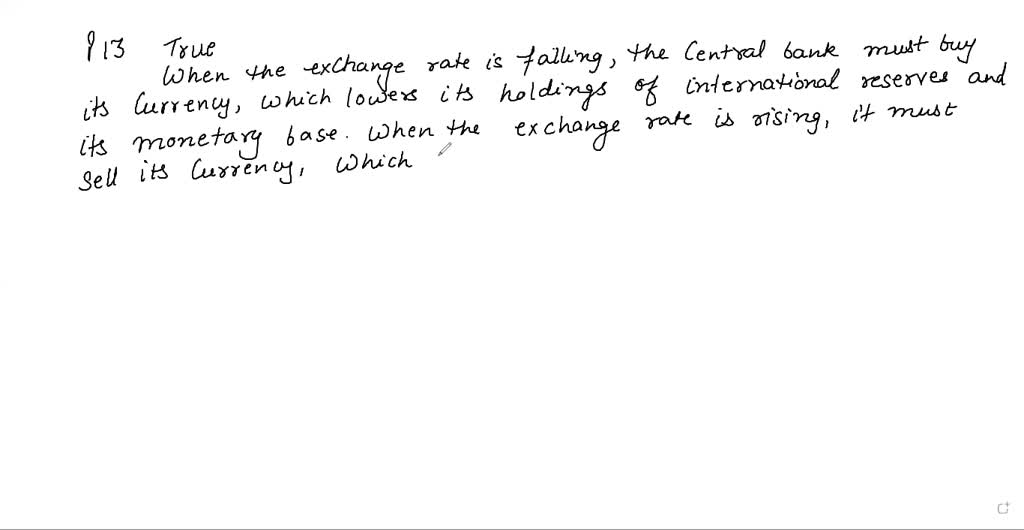 P 13 True
When the exchange rate is falling, the Central bank must buy
its Currency, which lowers its holdings of international reserves and
its monetary base. When the exchange rate is rising, it must
Sell its Currency, which